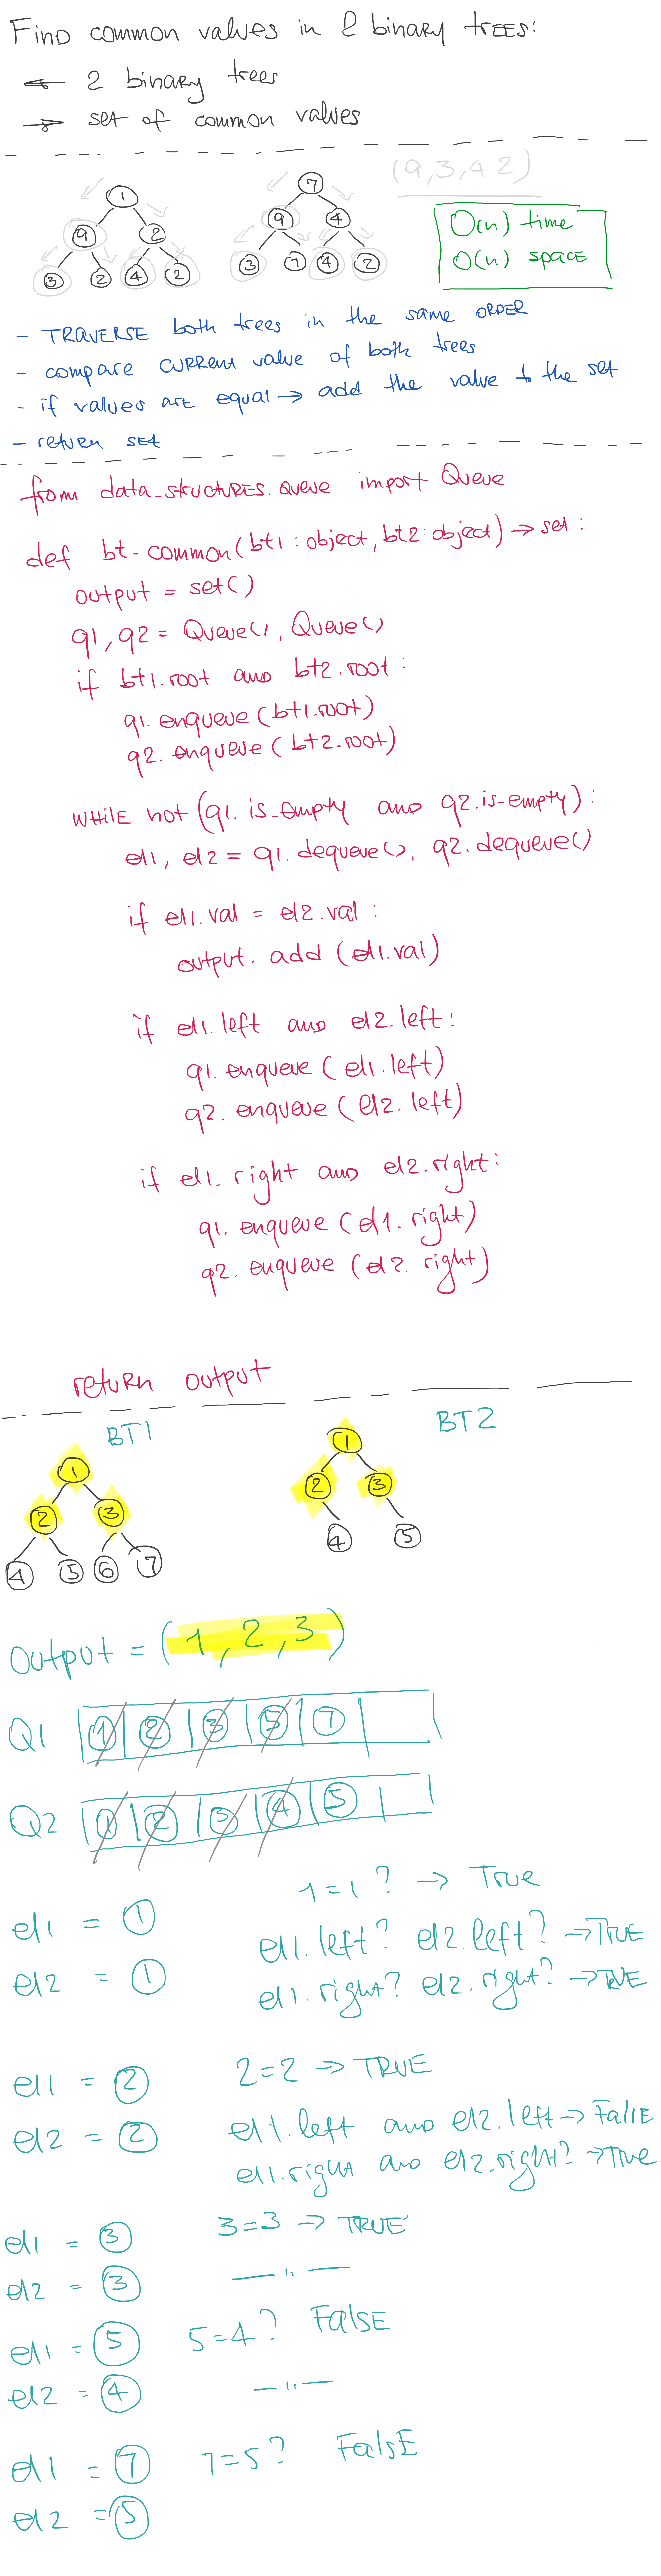 Find common values in 2 binary trees:
← 2 binary trees
→ set of common values
(9,3,4 2)
1
9 2
3 2 4 2
7
9 4
3 7 4 2
O(n) time
O(n) space
- TRAVERSE both trees in the same ORDER
- compare current value of both trees
- if values are equal → add the value to the set
- return set
from data_structures.queue import Queue
def bt-common(bt1: object, bt2: object) → set:
output = set()
q1, q2 = Queue(), Queue()
if bt1.root and bt2.root:
q1.enqueue(bt1.root)
q2.enqueue(bt2.root)
while not (q1.is_empty and q2.is-empty):
el1, el2 = q1.dequeue(), q2.dequeue()
if el1.val = el2.val:
output.add(el1.val)
if el1.left and el2.left:
q1.enqueue(el1.left)
q2.enqueue(el2.left)
if el1.right and el2.right:
q1.enqueue(el1.right)
q2.enqueue(el2.right)
return output
BT1
BT2
1
2 3
4 5 6 7
1
2 3
4 5
output = (1, 2, 3)
Q1 1 2 3 5 7
Q2 1 2 3 4 5
el1 = 1
el2 = 1
1=1? → True
el1.left? el2.left? → TRUE
el1.right? el2.right? → TRUE
el1 = 2
el2 = 2
2=2 → TRUE
el1.left and el2.left → False
el1.right and el2.right? → True
el1 = 3
el2 = 3
3=3 → TRUE
— " —
el1 = 5
el2 = 4
5=4? False
— " —
el1 = 7
el2 = 5
7=5? FalsE